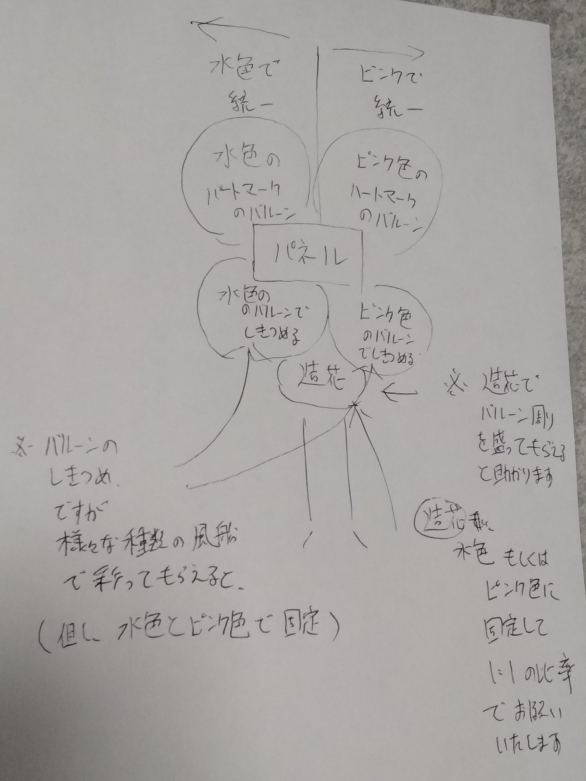 水色で
統一
ピンクで
統一
水色の
ハートマーク
のバルーン
ピンク色の
ハートマーク
のバルーン
パネル
水色の
のバルーンで
しきつめる
ピンク色
のバルーン
でしきつめる
造花
※ 造花で
バルーン周り
を盛ってもらえる
と助かります
※ バルーンの
しきつめ、
ですが
様々な種類の風船
で彩ってもらえると、
(但し、水色とピンク色で固定)
造花
水色もしくは
ピンク色に
固定して
1:1の比率
でお願い
いたします